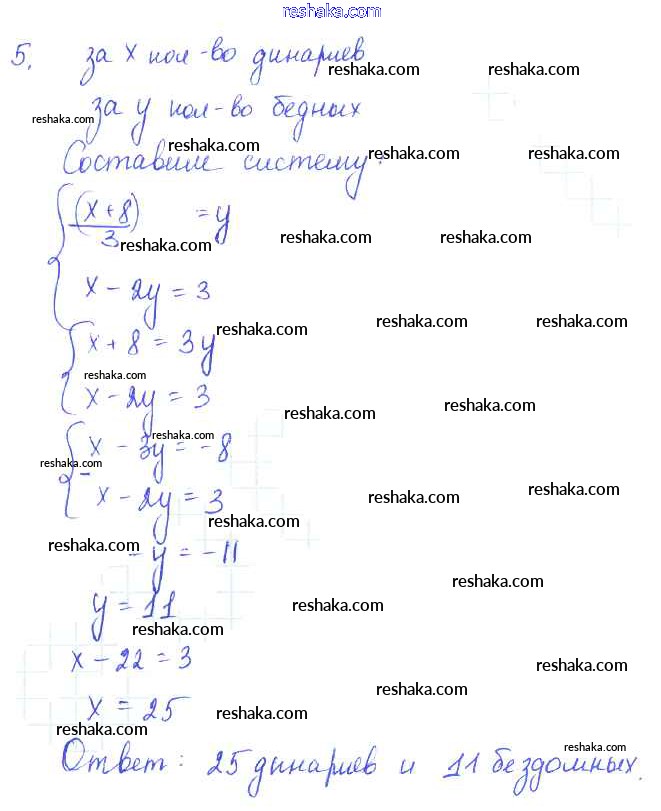 reshaka.com
5. за x кол-во динариев
reshaka.com reshaka.com
за y кол-во бедных
reshaka.com reshaka.com
Составим систему:
reshaka.com reshaka.com
(x + 8)/3 = y
reshaka.com reshaka.com reshaka.com
x - 2y = 3
reshaka.com reshaka.com reshaka.com
x + 8 = 3y
reshaka.com
x - 2y = 3
reshaka.com reshaka.com
reshaka.com
x - 3y = -8
reshaka.com
- x - 2y = 3
reshaka.com reshaka.com
reshaka.com
reshaka.com - y = -11
reshaka.com
y = 11
reshaka.com
reshaka.com
x - 22 = 3
reshaka.com
reshaka.com
x = 25
reshaka.com reshaka.com
reshaka.com
Ответ: 25 динариев и 11 бездомных.